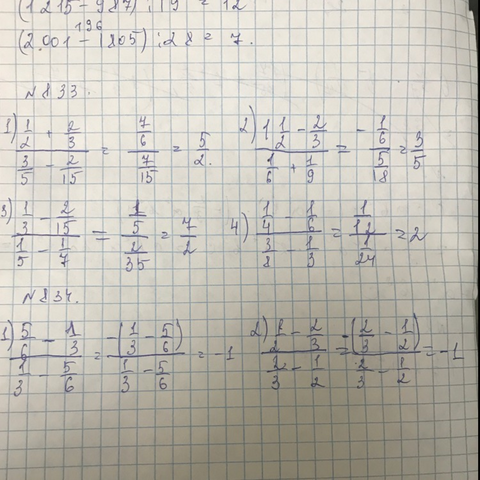 (1215 - 987) : 19 = 12
196
(2.001 - 1805) : 28 = 7.
№833.
1) (1/2 + 2/3)/(3/5 - 2/15) = (7/6)/(7/15) = 5/2. 2) (1 1/2 - 2/3)/(1/6 + 1/9) = (-1/6)/(5/18) = 3/5
3) (1/3 - 2/15)/(1/5 - 1/7) = (1/5)/(2/35) = 7/2 4) (1/4 - 1/6)/(3/8 - 1/3) = (1/12)/(1/24) = 2
№834.
1) (5/6 - 1/3)/(1/3 - 5/6) = (-(1/3 - 5/6))/(1/3 - 5/6) = -1 2) (1/2 - 2/3)/(2/3 - 1/2) = (-(2/3 - 1/2))/(2/3 - 1/2) = -1